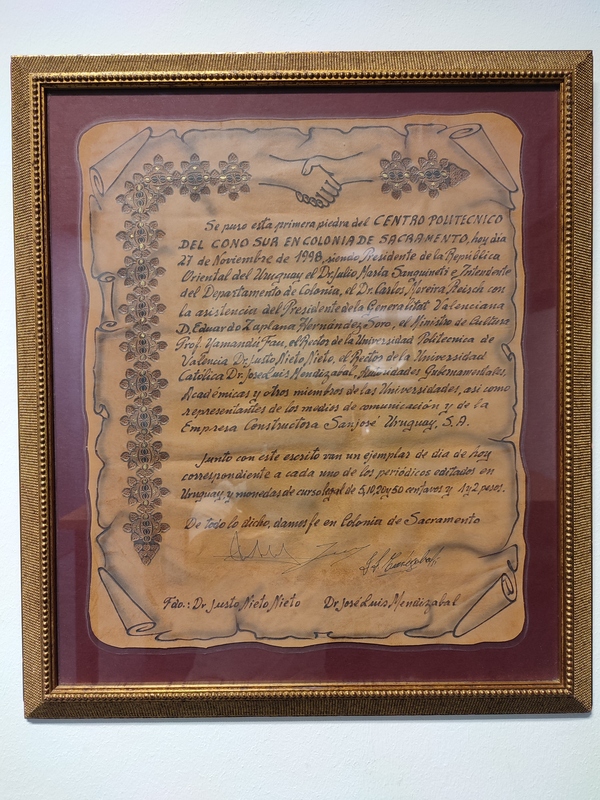 Se puso esta primera piedra del CENTRO POLITECNICO
DEL CONO SUR EN COLONIA DE SACRAMENTO, hoy día
27 de Noviembre de 1998, siendo Presidente de la República
Oriental del Uruguay el Dr. Julio María Sanguinetti e Intendente
del Departamento de Colonia, el Dr. Carlos Moreira Reisch con
la asistencia del Presidente de la Generalitat Valenciana
D. Eduardo Zaplana Hernández Soro, el Ministro de Cultura
Prof. Yamandú Fau, el Rector de la Universidad Politecnica de
Valencia Dr. Justo Nieto Nieto, el Rector de la Universidad
Católica Dr. Jose Luis Mendizabal, Autoridades Gubernamentales,
Académicas y otros miembros de las Universidades, así como
representantes de los medios de comunicación y de la
Empresa Constructora Sanjosé Uruguay, S.A.
Junto con este escrito van un ejemplar de dia de hoy
correspondiente a cada uno de los periódicos editados en
Uruguay, y monedas de curso legal de 5, 10, 20 y 50 centavos y 1 y 2 pesos.
De todo lo dicho, damos fe en Colonia de Sacramento
Fdo.: Dr Justo Nieto Nieto Dr José Luis Mendizabal